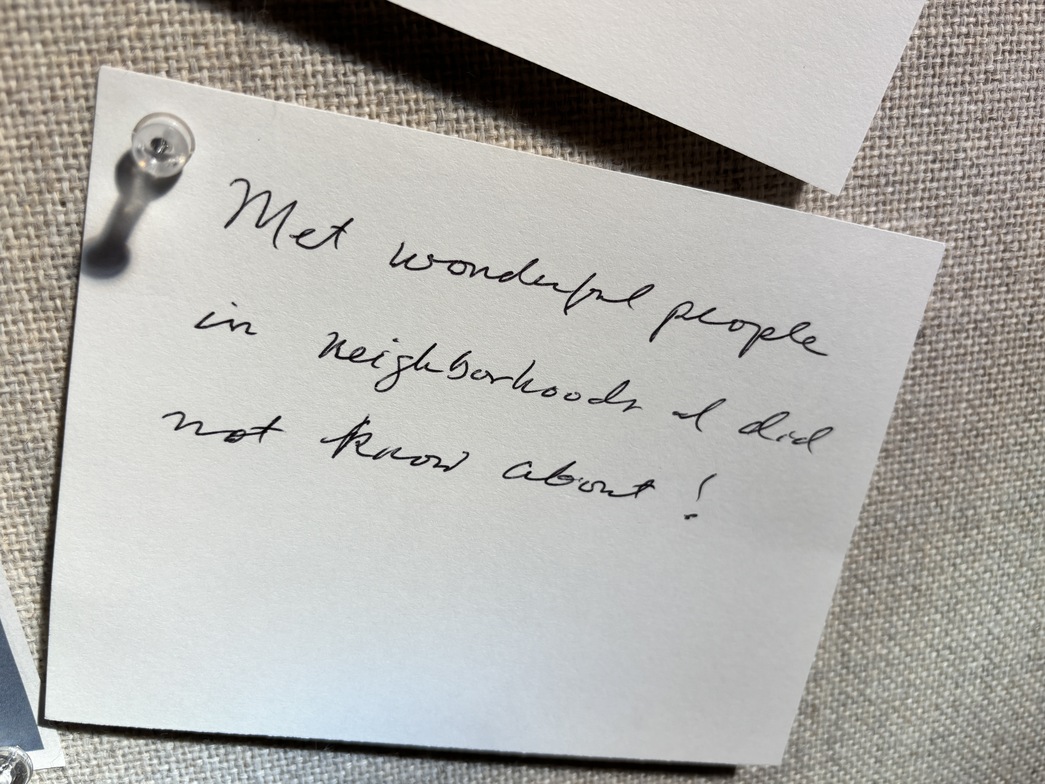 Met wonderful people
in neighborhoods I did
not know about!